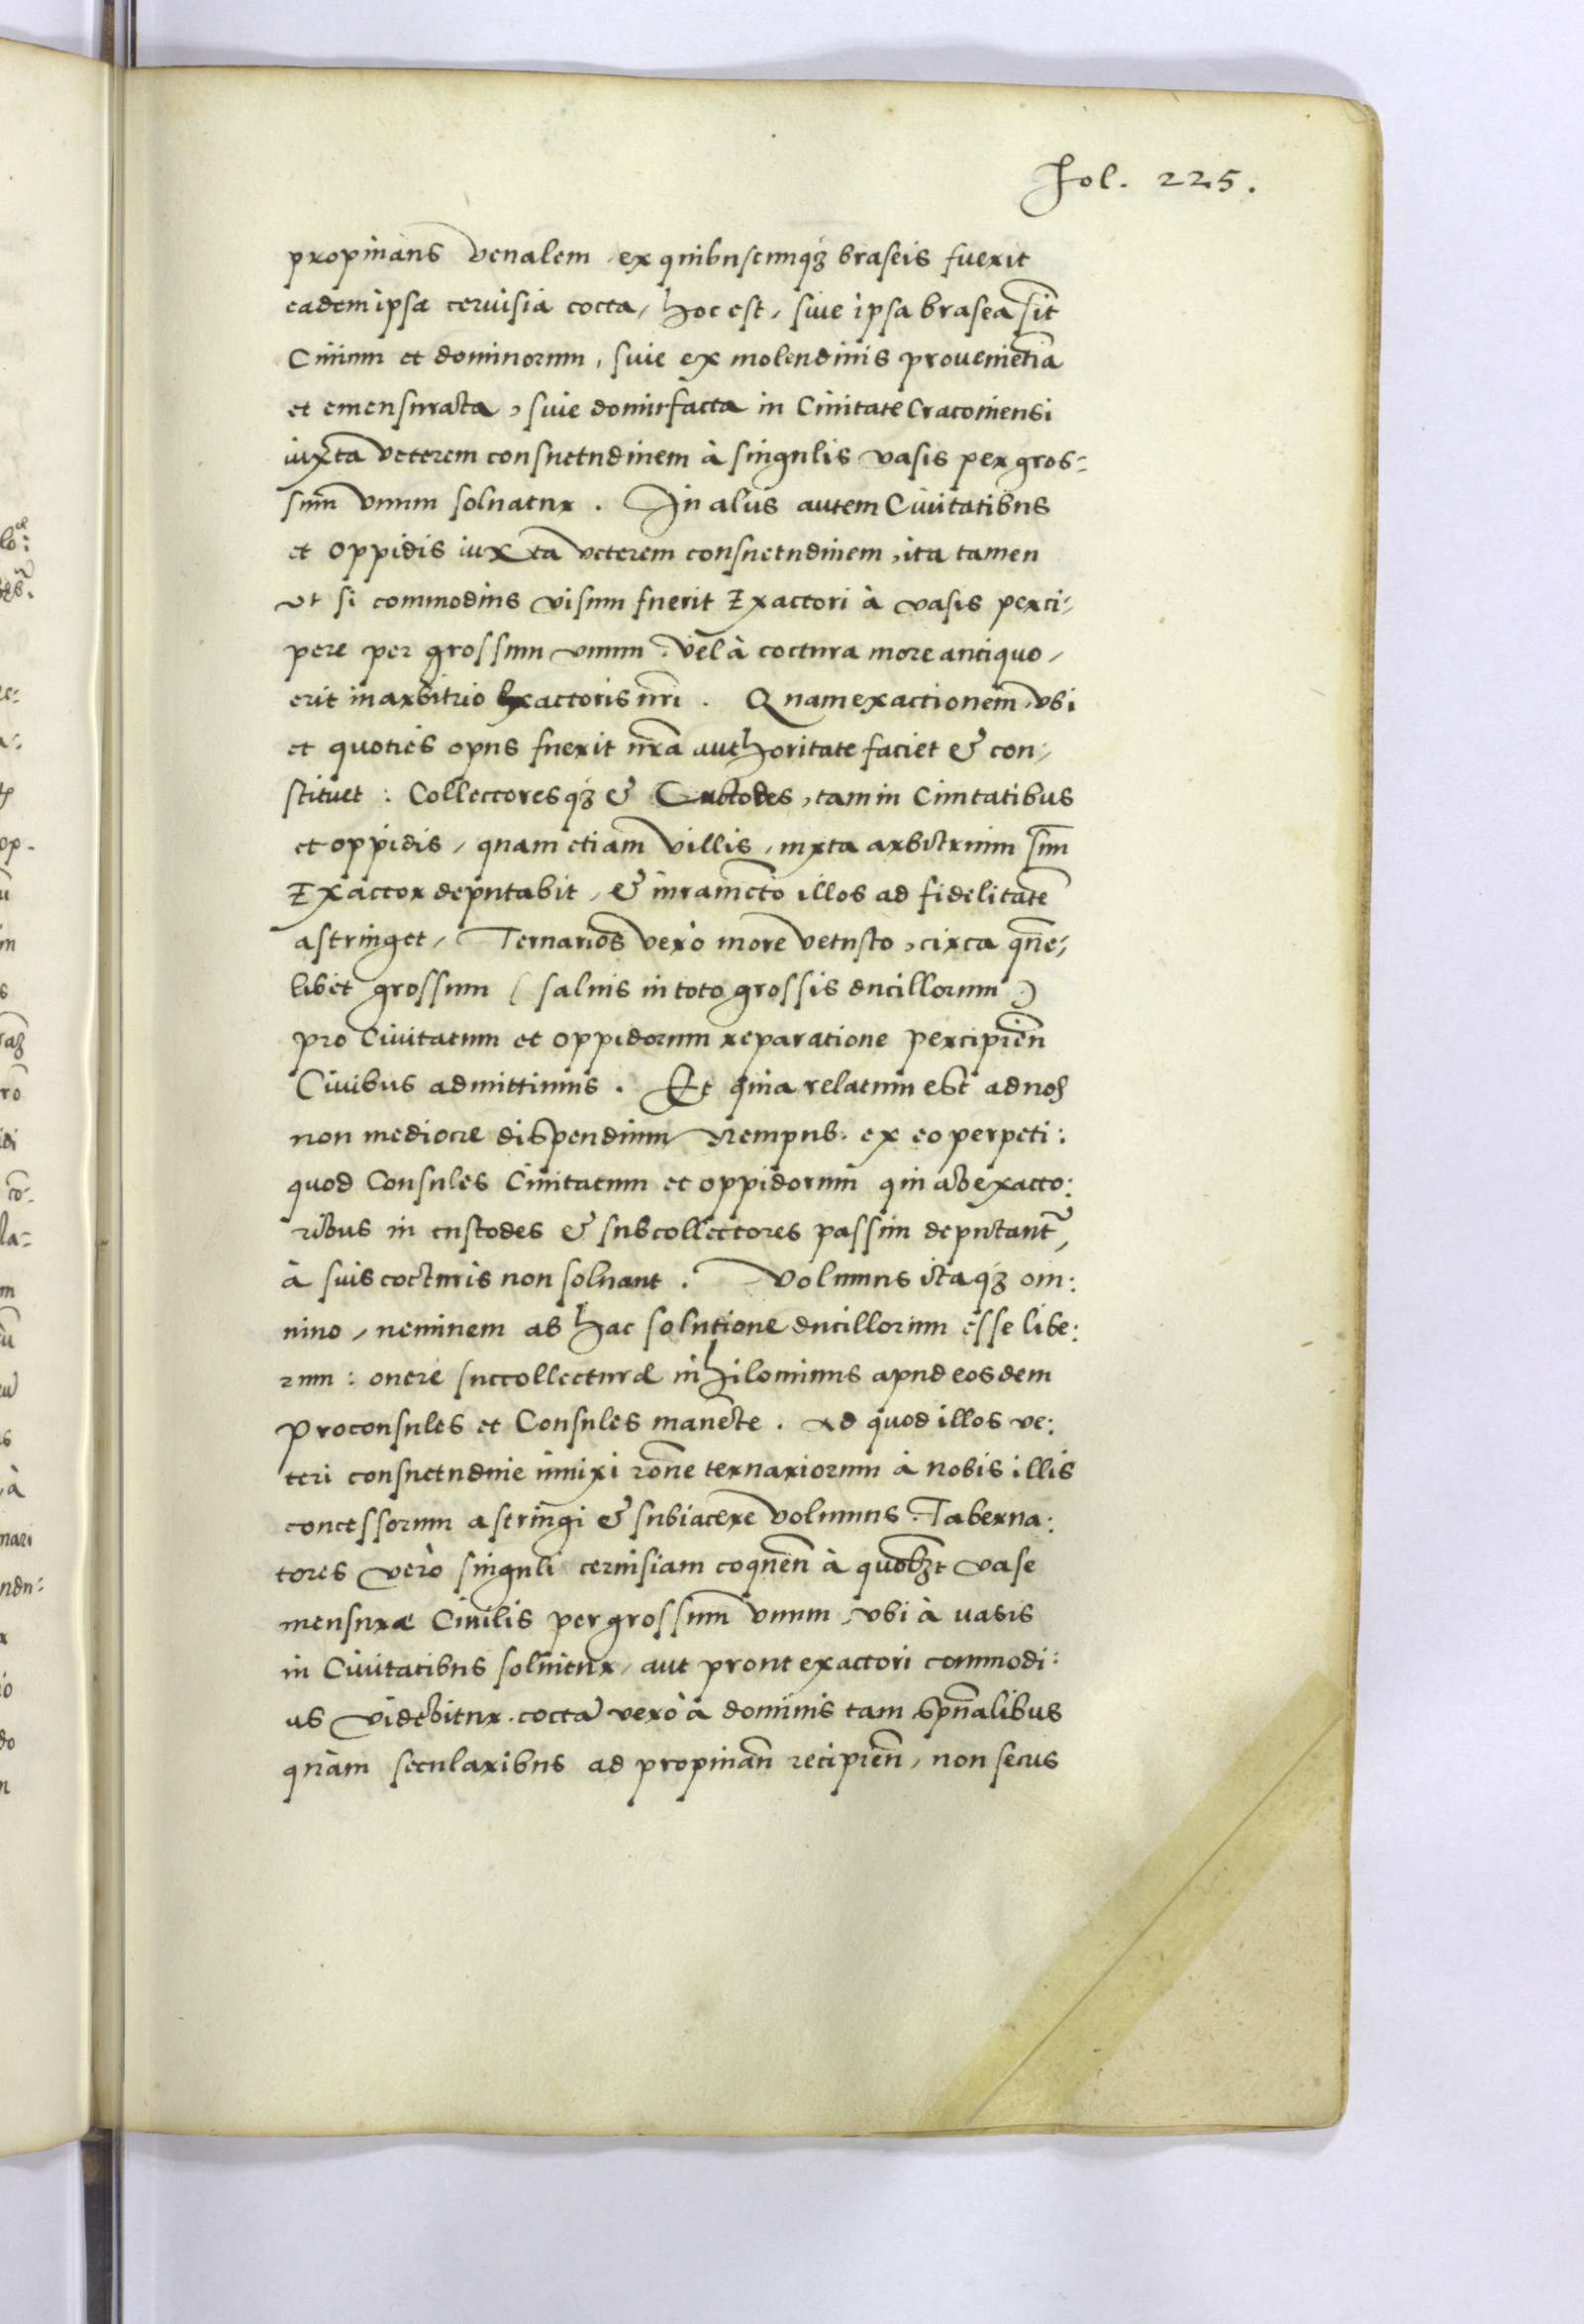 Fol. 225.
propinans venalem, ex quibuscunqꝫ braseis fuerit
eadem ipsa ceruisia cocta, hoc est, siue ipsa brasea sit
Ciuium et dominorum, siue ex molendinis prouenietia
et emensurata, siue domi facta in Ciuitate Cracouiensi
iuxta veterem consuetudinem à singulis vasis per gros=
sum vnum soluatur. In alijs autem Ciuitatibus
et oppidis iuxta veterem consuetudinem, ita tamen
vt si commodius visum fuerit Exactori à vasis perci=
pere per grossum vnum vel à coctura more antiquo,
erit in arbitrio Exactoris nr̃i. Quam exactionem, vbi
et quoties opus fuerit nr̃a authoritate faciet & con=
stituet: Collectoresqꝫ & Custodes, tam in Ciuitatibus
et oppidis, quam etiam villis, iuxta arbitrium suu̅
Exactor deputabit, & iuramẽto illos ad fidelitate̅
astringet, Ternarios verò more vetusto, circa que̅=
libet grossum (saluis in toto grossis ducillorum)
pro Ciuitatum et oppidorum reparatione percipien̅
Ciuibus admittimus. Et quia relatum est ad nos
non mediocre dispendium Rempub. ex eo perpeti:
quod Consules Ciuitatum et oppidorum qui ab exacto:
ribus in custodes & subcollectores passim deputant̃,
à suis cocturis non soluant. Volumus itaqꝫ om:
nino, neminem ab hac solutione ducillorum esse libe:
rum: onere succollecturæ nihilominus apud eosdem
Proconsules et Consules mane̅te. Ad quod illos ve:
teri consuetudine innixi ro̅ne ternariorum à nobis illis
concessorum astringi & subiacere volumus. Taberna:
tores verò singuli ceruisiam coquen̅ à quolꝫt vase
mensuræ Ciuilis per grossum vnum, vbi à uasis
in Ciuitatibus soluitur, aut prout exactori commodi:
us videbitur. cocta verò à dominis tam spu̅alibus
quàm secularibus ad propinan̅ recipien̅, non secus